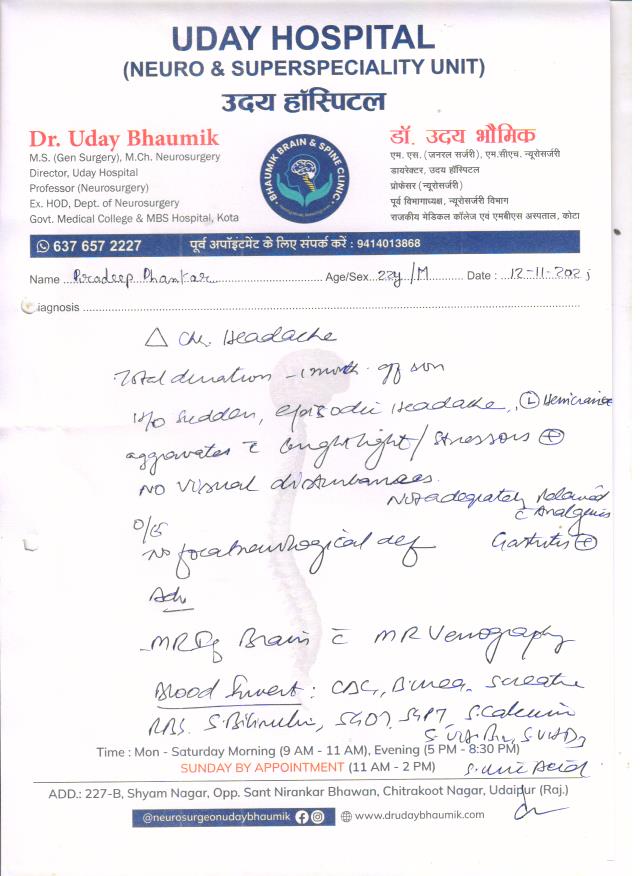 UDAY HOSPITAL
(NEURO & SUPERSPECIALITY UNIT)
उदय हॉस्पिटल
Dr. Uday Bhaumik
M.S. (Gen Surgery), M.Ch. Neurosurgery
Director, Uday Hospital
Professor (Neurosurgery)
Ex. HOD, Dept. of Neurosurgery
Govt. Medical College & MBS Hospital, Kota
BHAUMIK BRAIN & SPINE CLINIC
डॉ. उदय भौमिक
एम. एस. (जनरल सर्जरी), एम.सीएच. न्यूरोसर्जरी
डायरेक्टर, उदय हॉस्पिटल
प्रोफेसर (न्यूरोसर्जरी)
पूर्व विभागाध्यक्ष, न्यूरोसर्जरी विभाग
राजकीय मेडिकल कॉलेज एवं एमबीएस अस्पताल, कोटा
637 657 2227 पूर्व अपॉइंटमेंट के लिए संपर्क करें : 9414013868
Name Pradeep Dhankar Age/Sex 22y/M Date : 12-11-202
iagnosis
△ Ch. Headache
Total duration - 1 month
H/o sudden, episodic Headache, Ⓛ Hemicrania
aggravates c̄ bright light / stressors ⊕
No visual disturbances.
Not adequately relieved
c̄ Analgesics
O/E
No focal neurological def
Gastritis ⊕
Adv
MRI of Brain c̄ MR Venography
Blood Invest : CBC, B.urea, S creatine
RBS, S.Bilirubin, SGOT, SGPT, S.Calcium
S. Vit B12, S Vit D3
S. Uric Acid
Time : Mon - Saturday Morning (9 AM - 11 AM), Evening (5 PM - 8:30 PM)
SUNDAY BY APPOINTMENT (11 AM - 2 PM)
ADD.: 227-B, Shyam Nagar, Opp. Sant Nirankar Bhawan, Chitrakoot Nagar, Udaipur (Raj.)
@neurosurgeonudaybhaumik www.drudaybhaumik.com